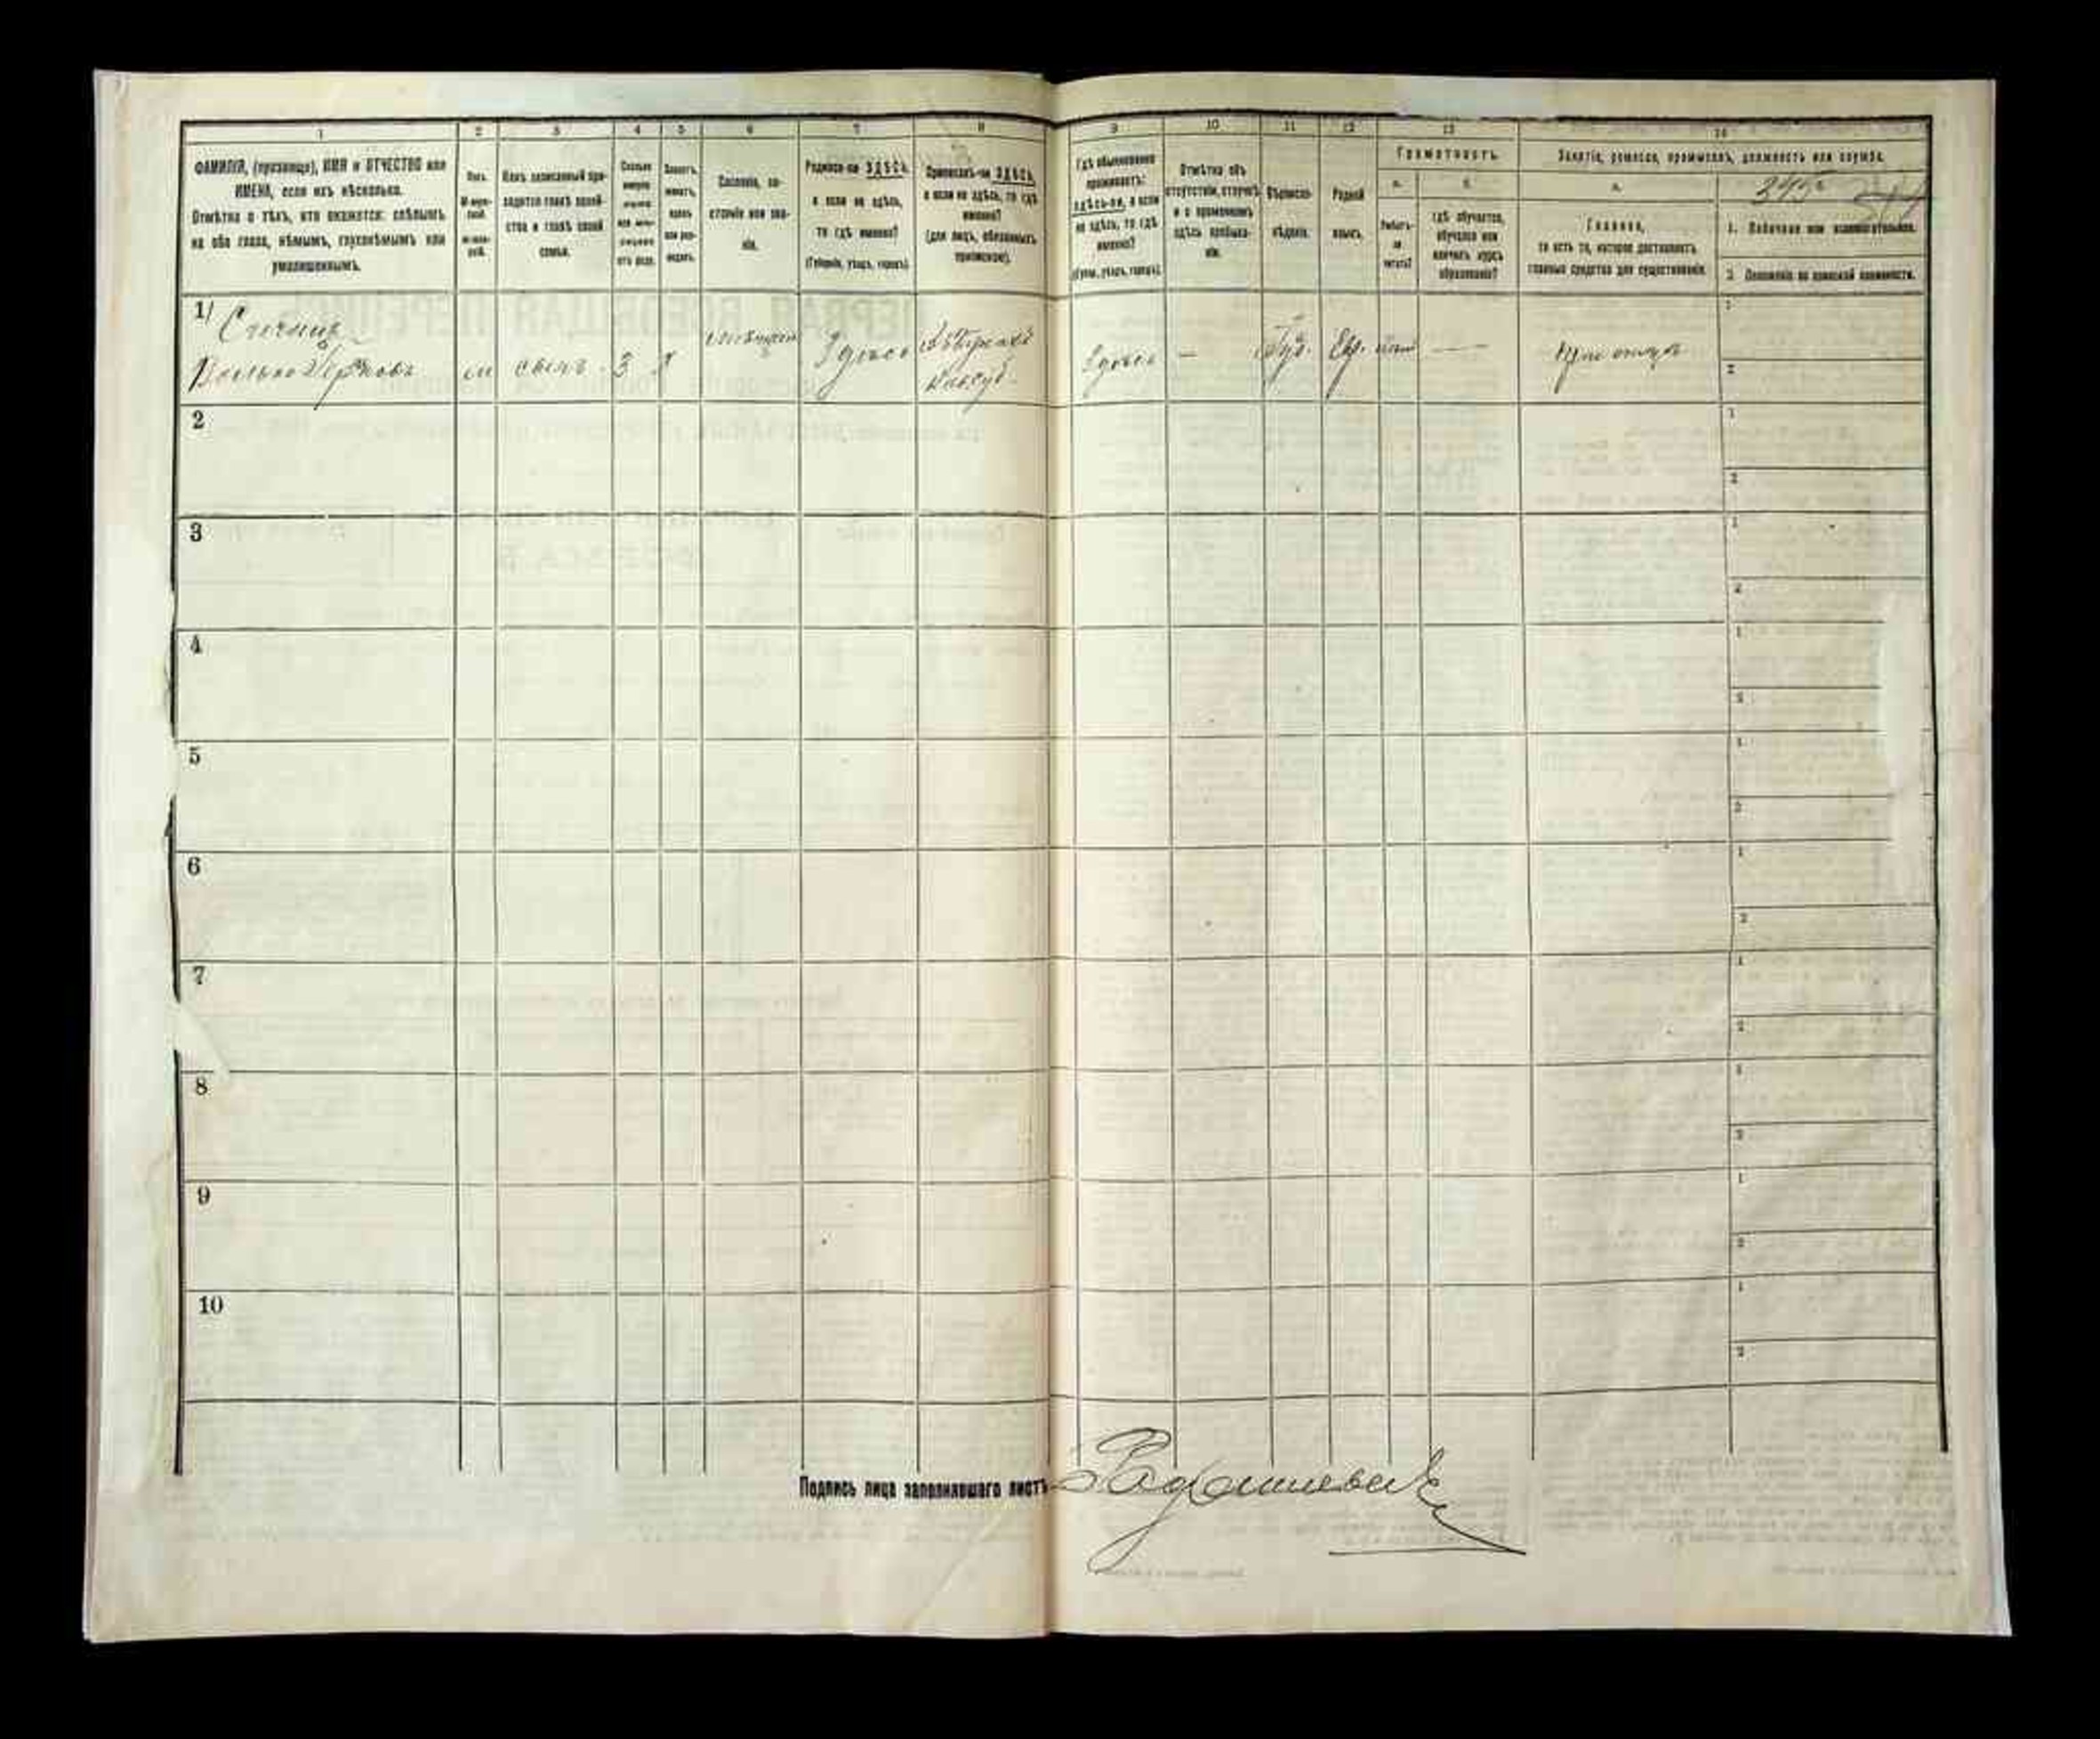 1 2 3 4 5 6 7 8 9 10 11 12 13 14
ФАМИЛІЯ, (прозвище), ИМЯ и ОТЧЕСТВО или
ИМЕНА, если ихъ нѣсколько.
Отмѣтка о тѣхъ, кто окажется: слѣпымъ
на оба глаза, нѣмымъ, глухонѣмымъ или
умалишеннымъ.
Полъ.
М-муж-
ской.
Ж-жен-
скій.
Какъ записанный при-
ходится главѣ хозяй-
ства и главѣ своей
семьи.
Сколько
отъ роду.
Холостъ,
женатъ,
вдовъ
или раз-
веденъ.
Сословіе, со-
стояніе или зва-
ніе.
Родился-ли ЗДѢСЬ,
а если не здѣсь,
то гдѣ именно?
(Губернія, уѣздъ, городъ).
Приписанъ-ли ЗДѢСЬ,
а если не здѣсь, то гдѣ
именно?
(для лицъ, обязанныхъ
припискою).
Гдѣ обыкновенно
проживаетъ:
здѣсь-ли, а если
не здѣсь, то гдѣ
именно?
(Губерн., уѣздъ, городъ).
Отмѣтка объ
отсутствіи, отлучкѣ
и о временномъ
здѣсь пребыва-
ніи.
Вѣроиспо-
вѣданіе.
Родной
языкъ.
Грамотность.
а.
Умѣетъ-
ли
читать?
б.
гдѣ обучается,
обучался или
кончилъ курсъ
образованія?
Занятіе, ремесло, промыселъ, должность или служба.
а.
Главное,
то есть то, которое доставляетъ
главныя средства для существованія.
345
1. Побочное или вспомогательное.
2. Положеніе по воинской повинности.
1/
м сынъ 3 х Здѣсь Здѣсь — Іуд. Евр. — При отцѣ
1
2
2
1
2
3
1
2
4
1
2
5
1
2
6
1
2
7
1
2
8
1
2
9
1
2
10
1
2
Подпись лица заполнявшаго листъ